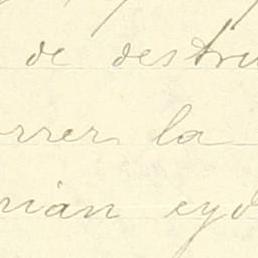 de destru
rrer la
rian eyd